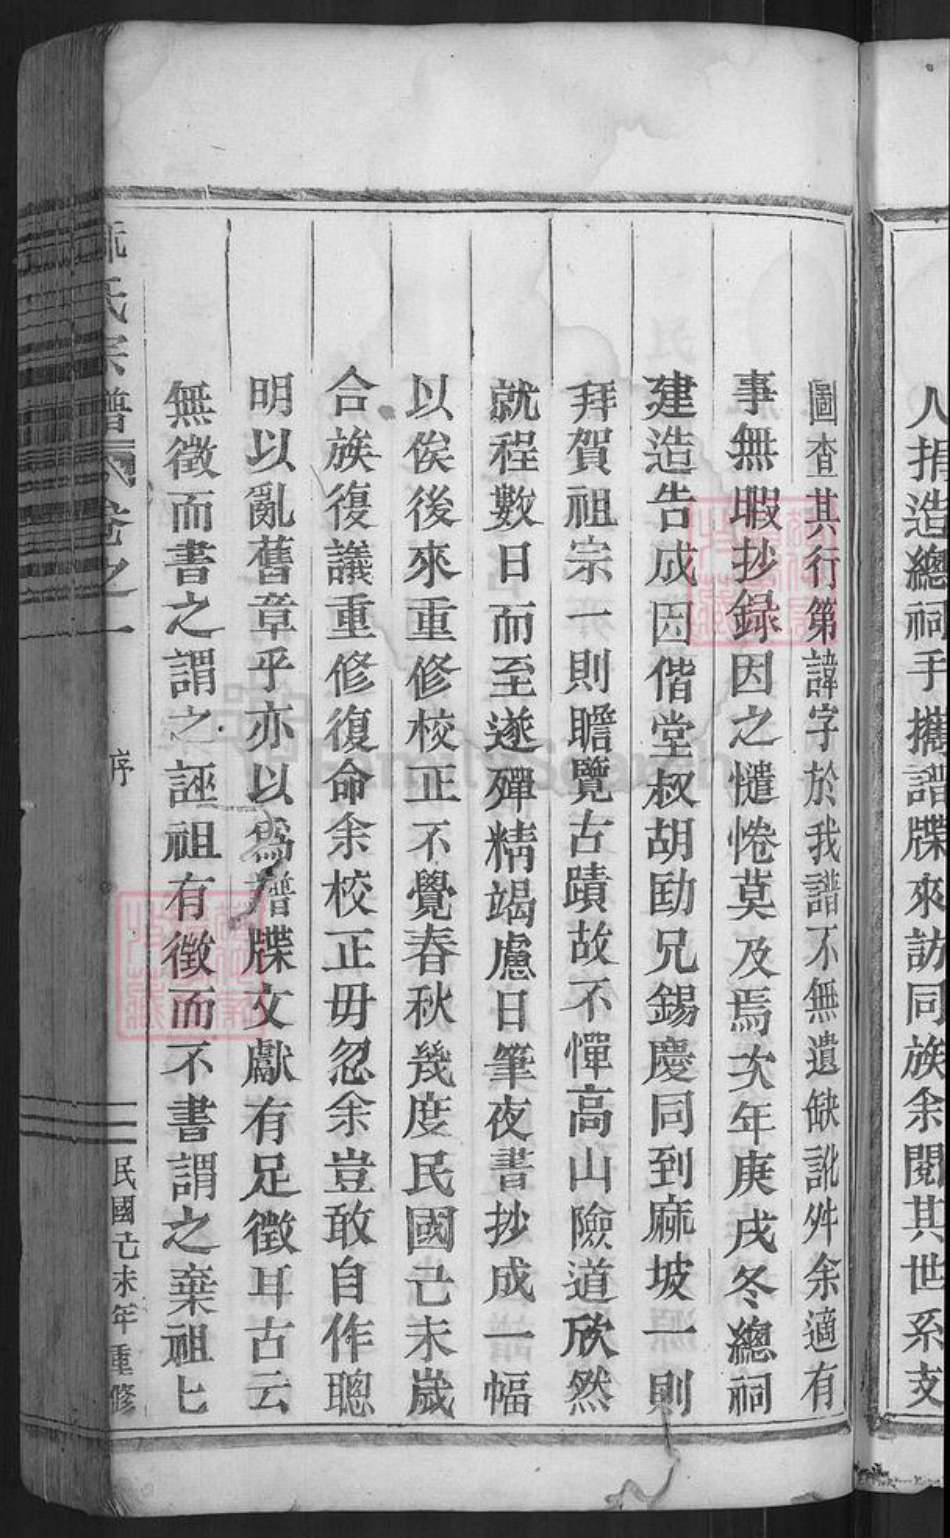 人捐造總祠手攜譜牒來訪同族余閱其世系支
圖查其行第諱字於我譜不無遺缺訛舛余適有
事無暇抄録因之憶惓莫及焉次年庚戌冬總祠
建造告成因偕堂叔胡勛兄錫慶同到麻坡一則
拜賀祖宗一則瞻覽古蹟故不憚高山險道欣然
就程數日而至遂殫精竭慮日筆夜書抄成一幅
以俟後來重修校正不覺春秋幾度民國己未歲
合族復議重修復命余校正毋忽余豈敢自作聰
明以亂舊章乎亦以為譜牒文獻有足徵耳古云
無徵而書之謂之誣祖有徵而不書謂之棄祖匕
氏宗譜 卷之一 序 民國己未年重修